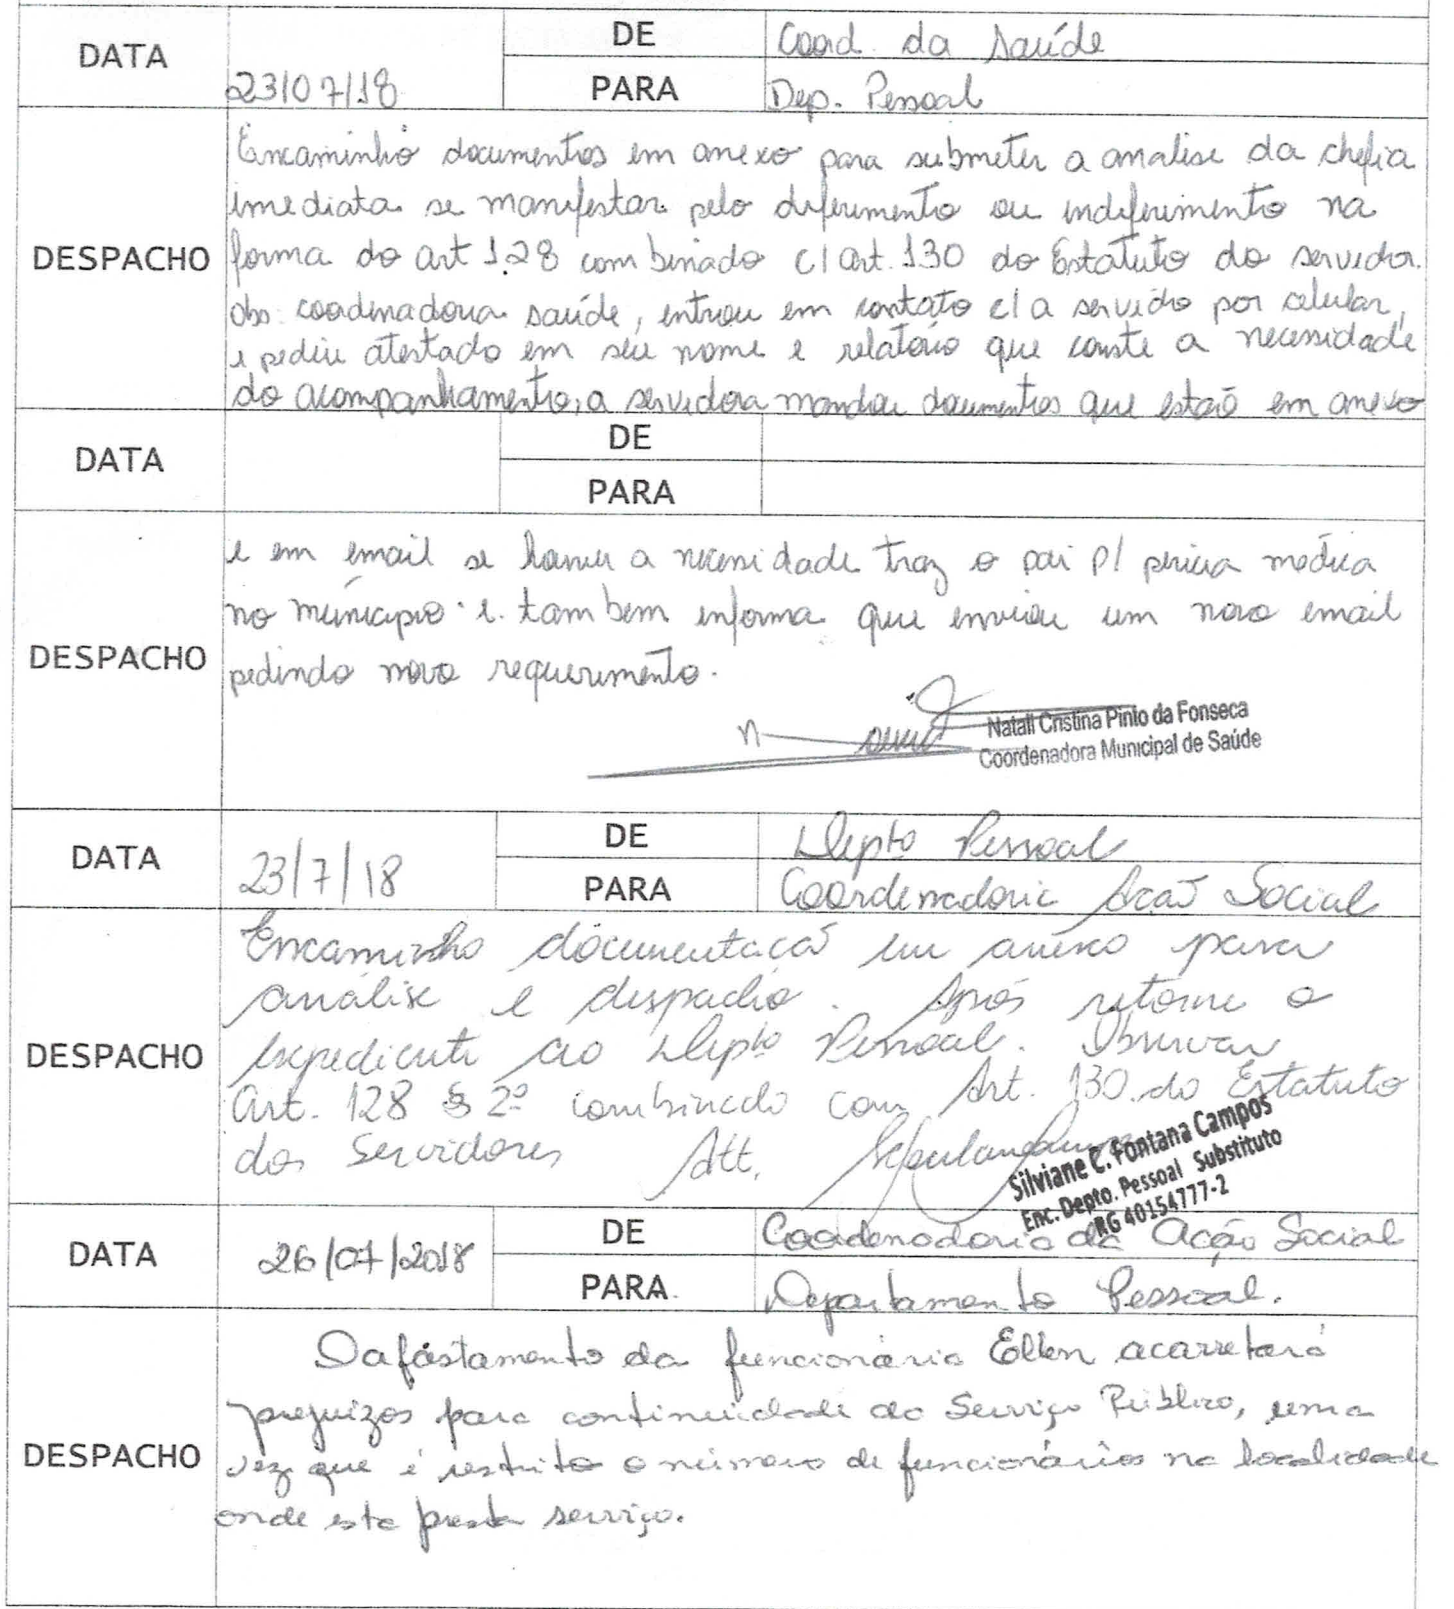 DATA 23/07/18 DE Coord. da Saúde
PARA Dep. Pessoal
Encaminho documentos em anexo para submeter a analise da chefia
imediata se manifestar pelo deferimento ou indeferimento na
DESPACHO forma do art 128 combinado c/ art. 130 do Estatuto do servidor.
obs: coordenadora saúde, entrou em contato c/ a servido por celular,
e pediu atestado em seu nome e relatório que conste a necessidade
do acompanhamento, a servidora mandou documentos que estão em anexo
DATA DE
PARA
e em email se haver a necessidade traz o pai p/ pericia medica
no municipio e tambem informa que enviou um novo email
DESPACHO pedindo novo requerimento.
Natali Cristina Pinto da Fonseca
Coordenadora Municipal de Saúde
DATA 23/7/18 DE Depto Pessoal
PARA Coordenadoria Ação Social
Encaminho documentação em anexo para
análise e despacho. Após retorne o
DESPACHO expediente ao Depto Pessoal. Observar
art. 128 § 2º combinado com Art. 130 do Estatuto
dos Servidores Att,
Silviane C. Fontana Campos
Enc. Depto. Pessoal Substituto
RG 40154777-2
DATA 26/07/2018 DE Coordenadoria da Ação Social
PARA Departamento Pessoal.
O afastamento da funcionária Ellen acarretará
prejuizos para continuidade do Serviço Público, uma
DESPACHO vez que é restrito o número de funcionários na localidade
onde esta presta serviço.